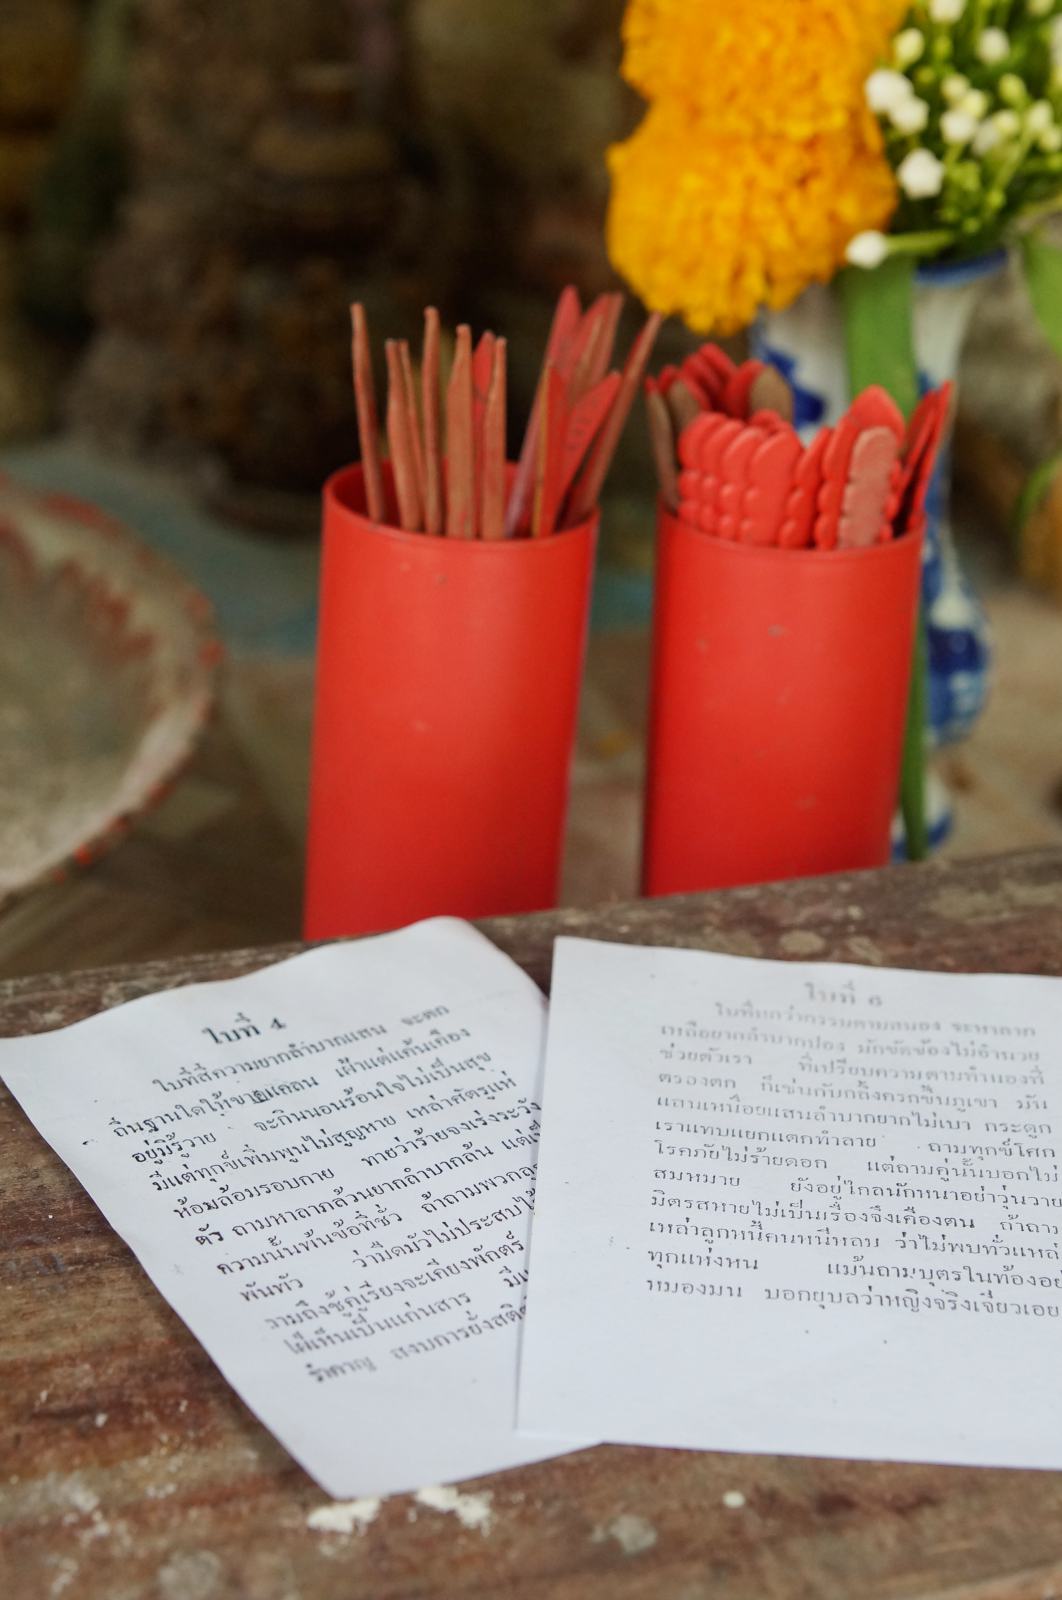 ใบที่ 4
ใบที่สี่ความยากลำบากแสน จะตก
ถิ่นฐานใดให้เขาแคลน เฝ้าแต่แค้นเคือง
อยู่มิรู้วาย จะกินนอนร้อนใจไม่เป็นสุข
มีแต่ทุกข์เพิ่มพูนไม่สูญหาย เหล่าศัตรูแห่
ห้อมล้อมรอบกาย ทายว่าร้ายจงเร่งระวัง
ตัว ถามหาลาภล้วนยากลำบากล้น
ความนั้นพ้นข้อที่ชั่ว ถ้าถามพวก
พันพัว ว่ามืดมัวไม่ประสบ
ถามถึงชู้คู่เรียงจะเคียงพักตร์
เป็นแก่นสาร
รำคาญ สงบการยั้ง
ใบที่ 6
ใบที่หกว่ากรรมตามสนอง จะหาลาภ
เหลือยากลำบากปอง มักขัดข้องไม่อำนวย
ช่วยตัวเรา ที่เปรียบความตามทำนองที่
ตรองตก ก็เช่นกับกลิ้งครกขึ้นภูเขา มัน
แสนเหนื่อยแสนลำบากยากไม่เบา กระดูก
เราแทบแยกแตกทำลาย ถามทุกข์โศก
โรคภัยไม่ร้ายดอก แต่ถามคู่นั้นบอกไม่
สมหมาย ยังอยู่ไกลนักหนาอย่าวุ่นวาย
มิตรสหายไม่เป็นเรื่องจึงเคืองตน ถ้าถาม
เหล่าลูกหนี้คนหนีหลบ ว่าไม่พบทั่วแหล่
ทุกแห่งหน แม้นถามบุตรในท้องอย่
หมองมน บอกยุบลว่าหญิงจริงเจียวเอย